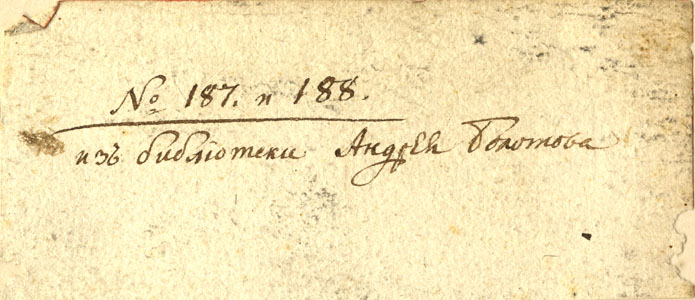 No 187. и 188.
изъ библіотеки Андрея Болотова